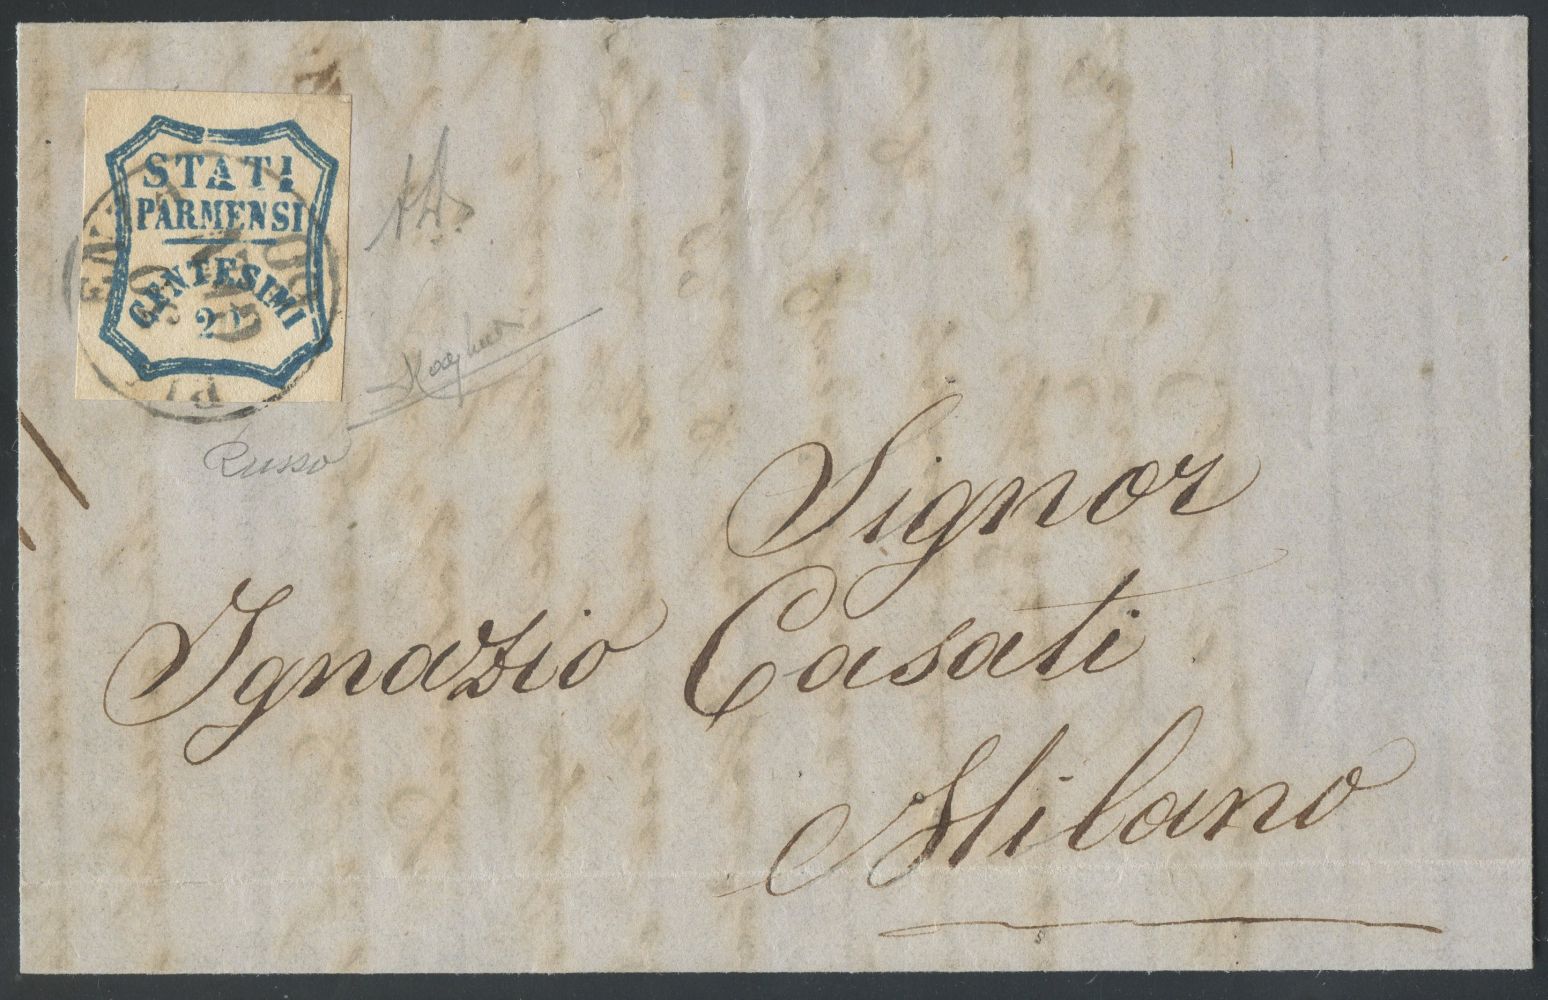 STATI
PARMENSI
CENTESIMI
20
Russo
Signor
Ignazio Casati
Milano